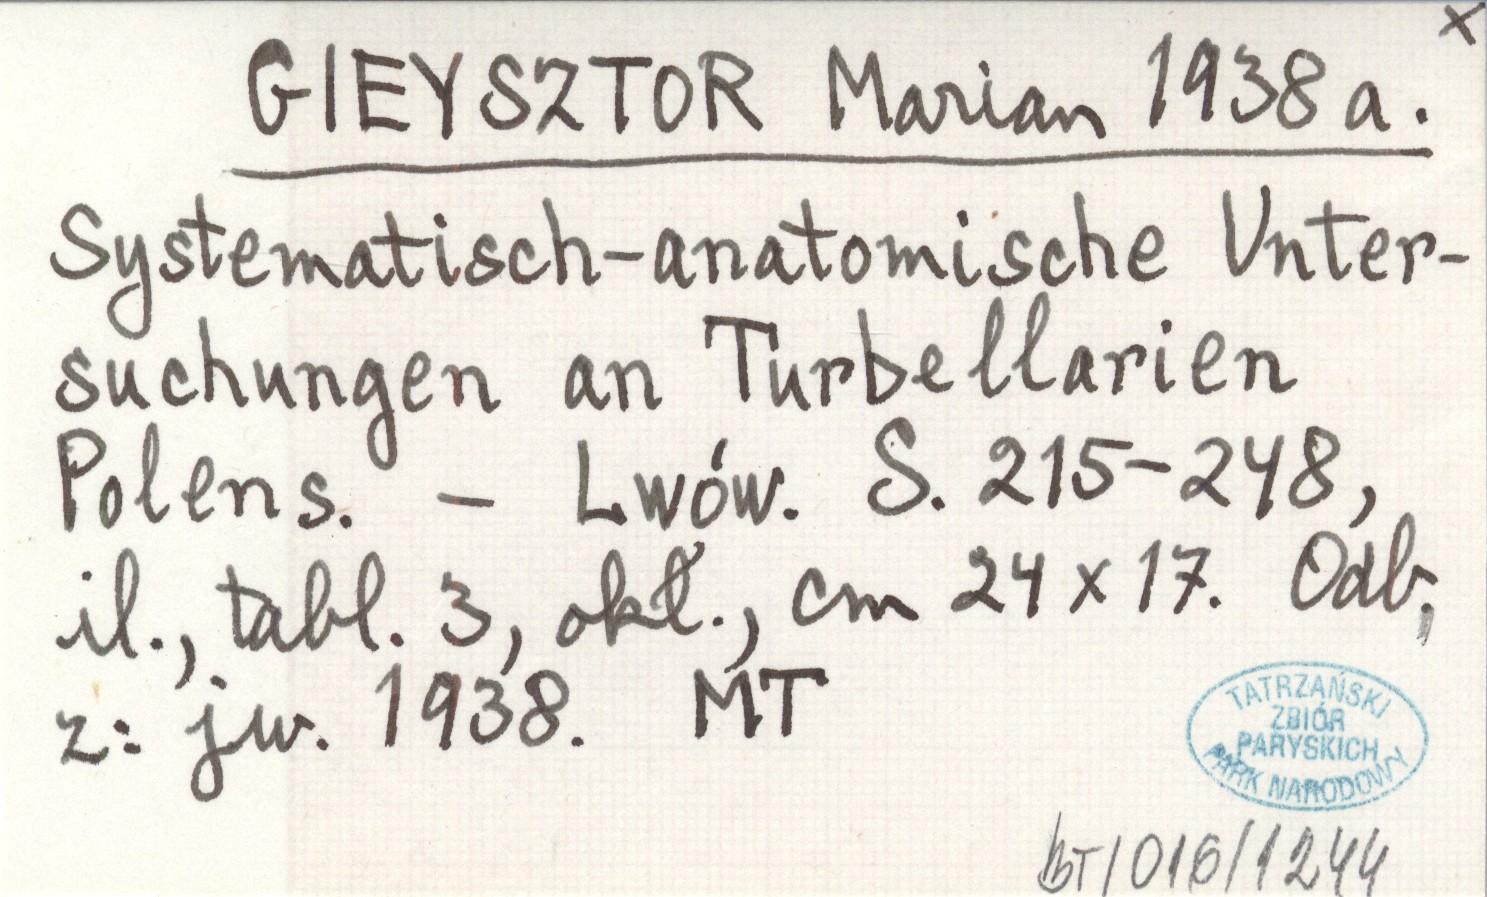 x
GIEYSZTOR Marian 1938 a.
Systematisch-anatomische Unter-
suchungen an Turbellarien
Polens. – Lwów. S. 215-248,
il., tabl. 3, okł., cm 24 x 17. Odb.
z: jw. 1938. MT
TATRZAŃSKI
ZBIÓR
PARYSKICH
PARK NARODOWY
/016/1244